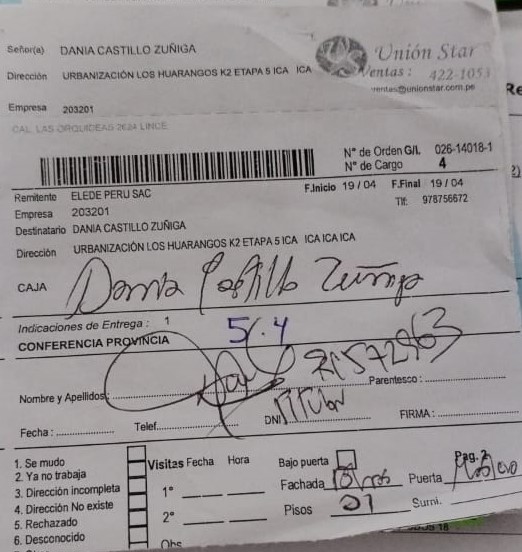 Señor(a) DANIA CASTILLO ZUÑIGA
Unión Star
Dirección URBANIZACIÓN LOS HUARANGOS K2 ETAPA 5 ICA ICA
Ventas : 422-1053
ventas@unionstar.com.pe
Empresa 203201
CAL. LAS ORQUIDEAS 2624 LINCE
Re
N° de Orden G/L 026-14018-1
N° de Cargo 4
Remitente ELEDE PERU SAC
F.Inicio 19 / 04 F.Final 19 / 04
Empresa 203201
Tlf: 978756672
Destinatario DANIA CASTILLO ZUÑIGA
Dirección URBANIZACIÓN LOS HUARANGOS K2 ETAPA 5 ICA ICA ICA ICA
CAJA Dania Castillo Zuñiga
Indicaciones de Entrega : 1
5/.4
CONFERENCIA PROVINCIA
21572963
Nombre y Apellidos:
Parentesco :
Fecha : Telef. DNI Titular FIRMA :
1. Se mudo
2. Ya no trabaja
3. Dirección incompleta
4. Dirección No existe
5. Rechazado
6. Desconocido
Visitas Fecha Hora
1°
2°
Obs
Bajo puerta
Pag. 2
Fachada Puerta
Pisos 01 Sumi.